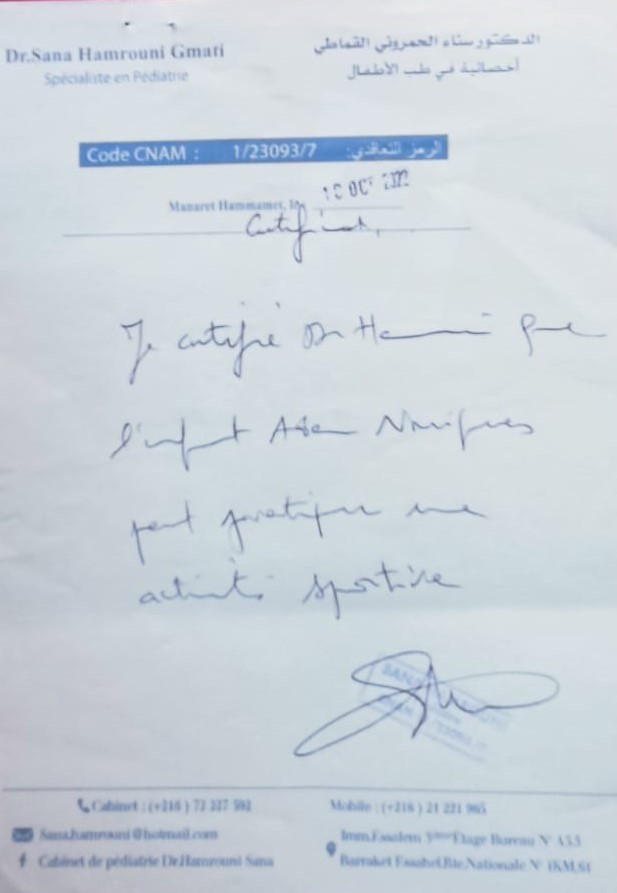 Dr.Sana Hamrouni Gmati
Spécialiste en Pédiatrie
الدكتور سناء الحمروني القماطي
أخصائية في طب الأطفال
Code CNAM : 1/23093/7 الرمز التعاقدي:
Manaret Hammamet, le
Certificat,
Je certifie Dr Hamrouni que
l'enfant
peut pratiquer une
activité sportive
SANA
Cabinet : (+216) 72 227 592
Mobile : (+216) 21 221 965
Sana.hamrouni@hotmail.com
Imm.Essalem Etage Bureau N° A5.5
Cabinet de pédiatrie Dr.Hamrouni Sana
Barraket Essahel,Rte.Nationale N° 1KM.61